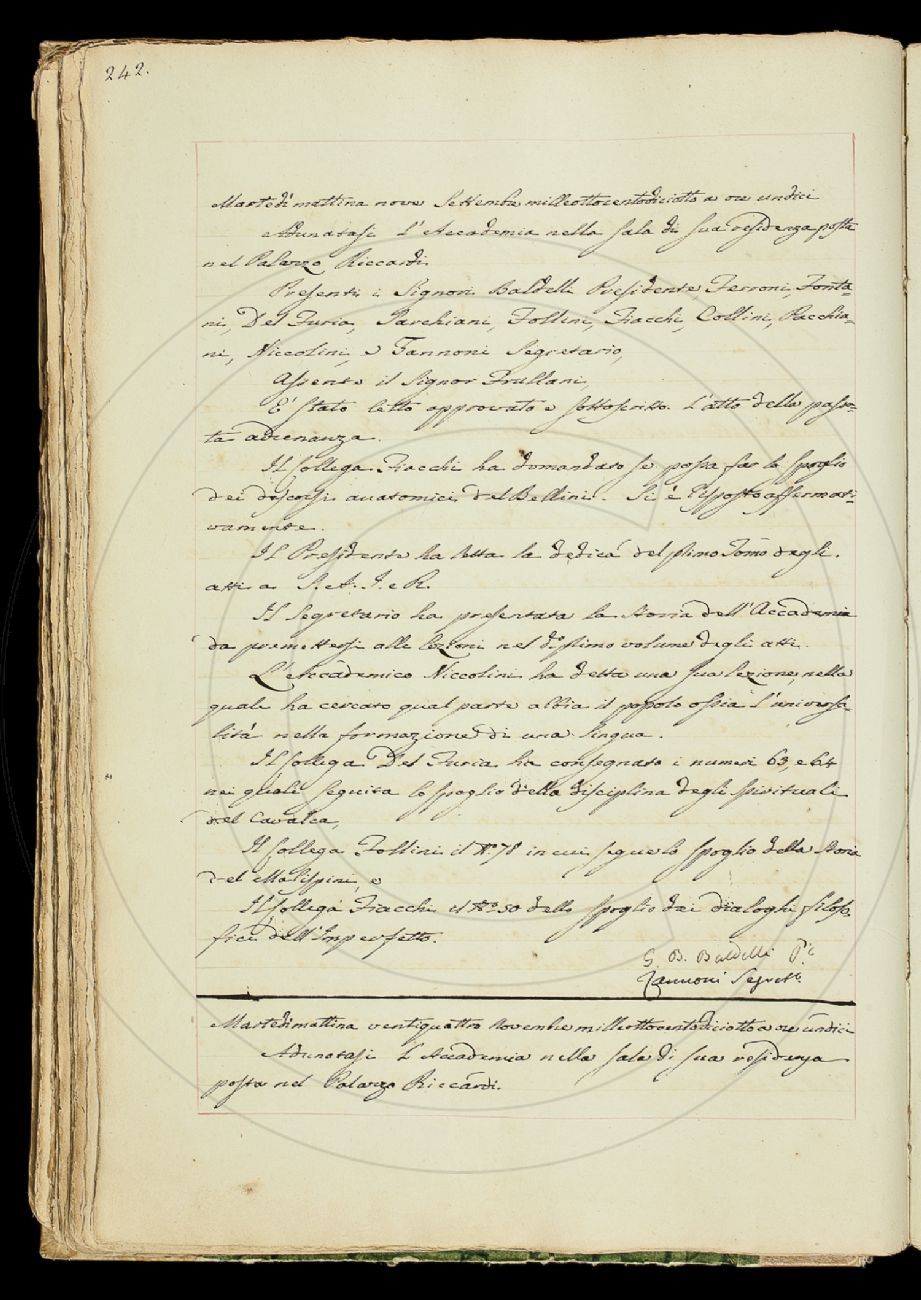 242.
Martedì mattina nove Settembre milleottocentodiciotto a ore undici
Adunatasi l'Accademia nella sala di sua residenza posta
nel Palazzo Riccardi.
Presenti i Signori Baldelli Presidente, Ferroni, Fonta=
ni, Del Furia, Sarchiani, Follini, Fiacchi, Collini, Pacchia=
ni, Niccolini, e Zannoni Segretario,
Assente il Signor Frullani,
E' stato letto approvato e sottoscritto l'atto della passa=
ta adunanza.
Il Collega Fiacchi ha domandato se possa far lo spoglio
dei discorsi anatomici del Bellini. Si è risposto affermati=
vamente.
Il Presidente ha letta la dedica del primo Tomo degli
atti a S. A. I. e R.
Il Segretario ha presentata la storia dell'Accademia
da premettersi alle lezioni nel d.º primo volume degli atti.
L'Accademico Niccolini ha detta una sua lezione, nella
quale ha cercato qual parte abbia il popolo ossia l'universa=
lità nella formazione di una lingua.
Il Collega Del Furia ha consegnato i numeri 63, e 64
nei quali seguita lo spoglio della disciplina degli spirituali
del Cavalca,
Il Collega Follini il N.º 78 in cui segue lo spoglio della Storia
del Malispini, e
Il Collega Fiacchi il N.º 50 dello spoglio dei dialoghi filoso
fici dell'Imperfetto.
G. B. Baldelli P.e
Zannoni Segret.º
Martedì mattina ventiquattro Novembre milleottocentodiciotto a ore undici
Adunatasi l'Accademia nella sala di sua residenza
posta nel Palazzo Riccardi.